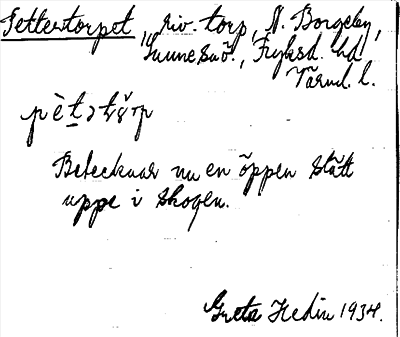 Pettertorpet, riv. torp, N. Borgeby,
Sunne sn., Fryksd. hd
Värml. l.
pètətɷ̌rp
Betecknar nu en öppen slätt
uppe i skogen.
Greta Hedin 1934.